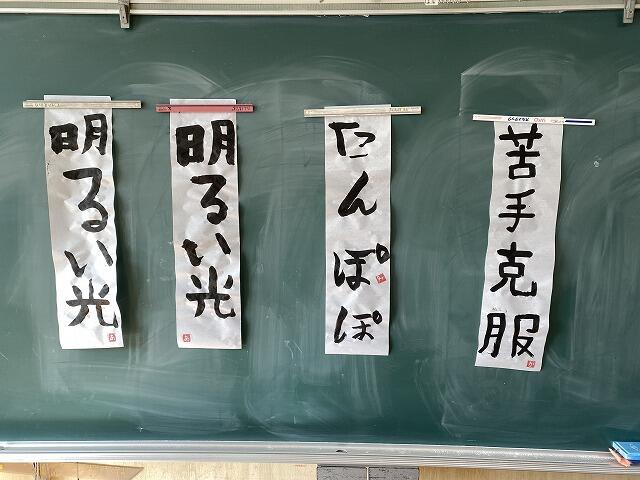 苦手克服
たんぽぽ
明るい光
明るい光